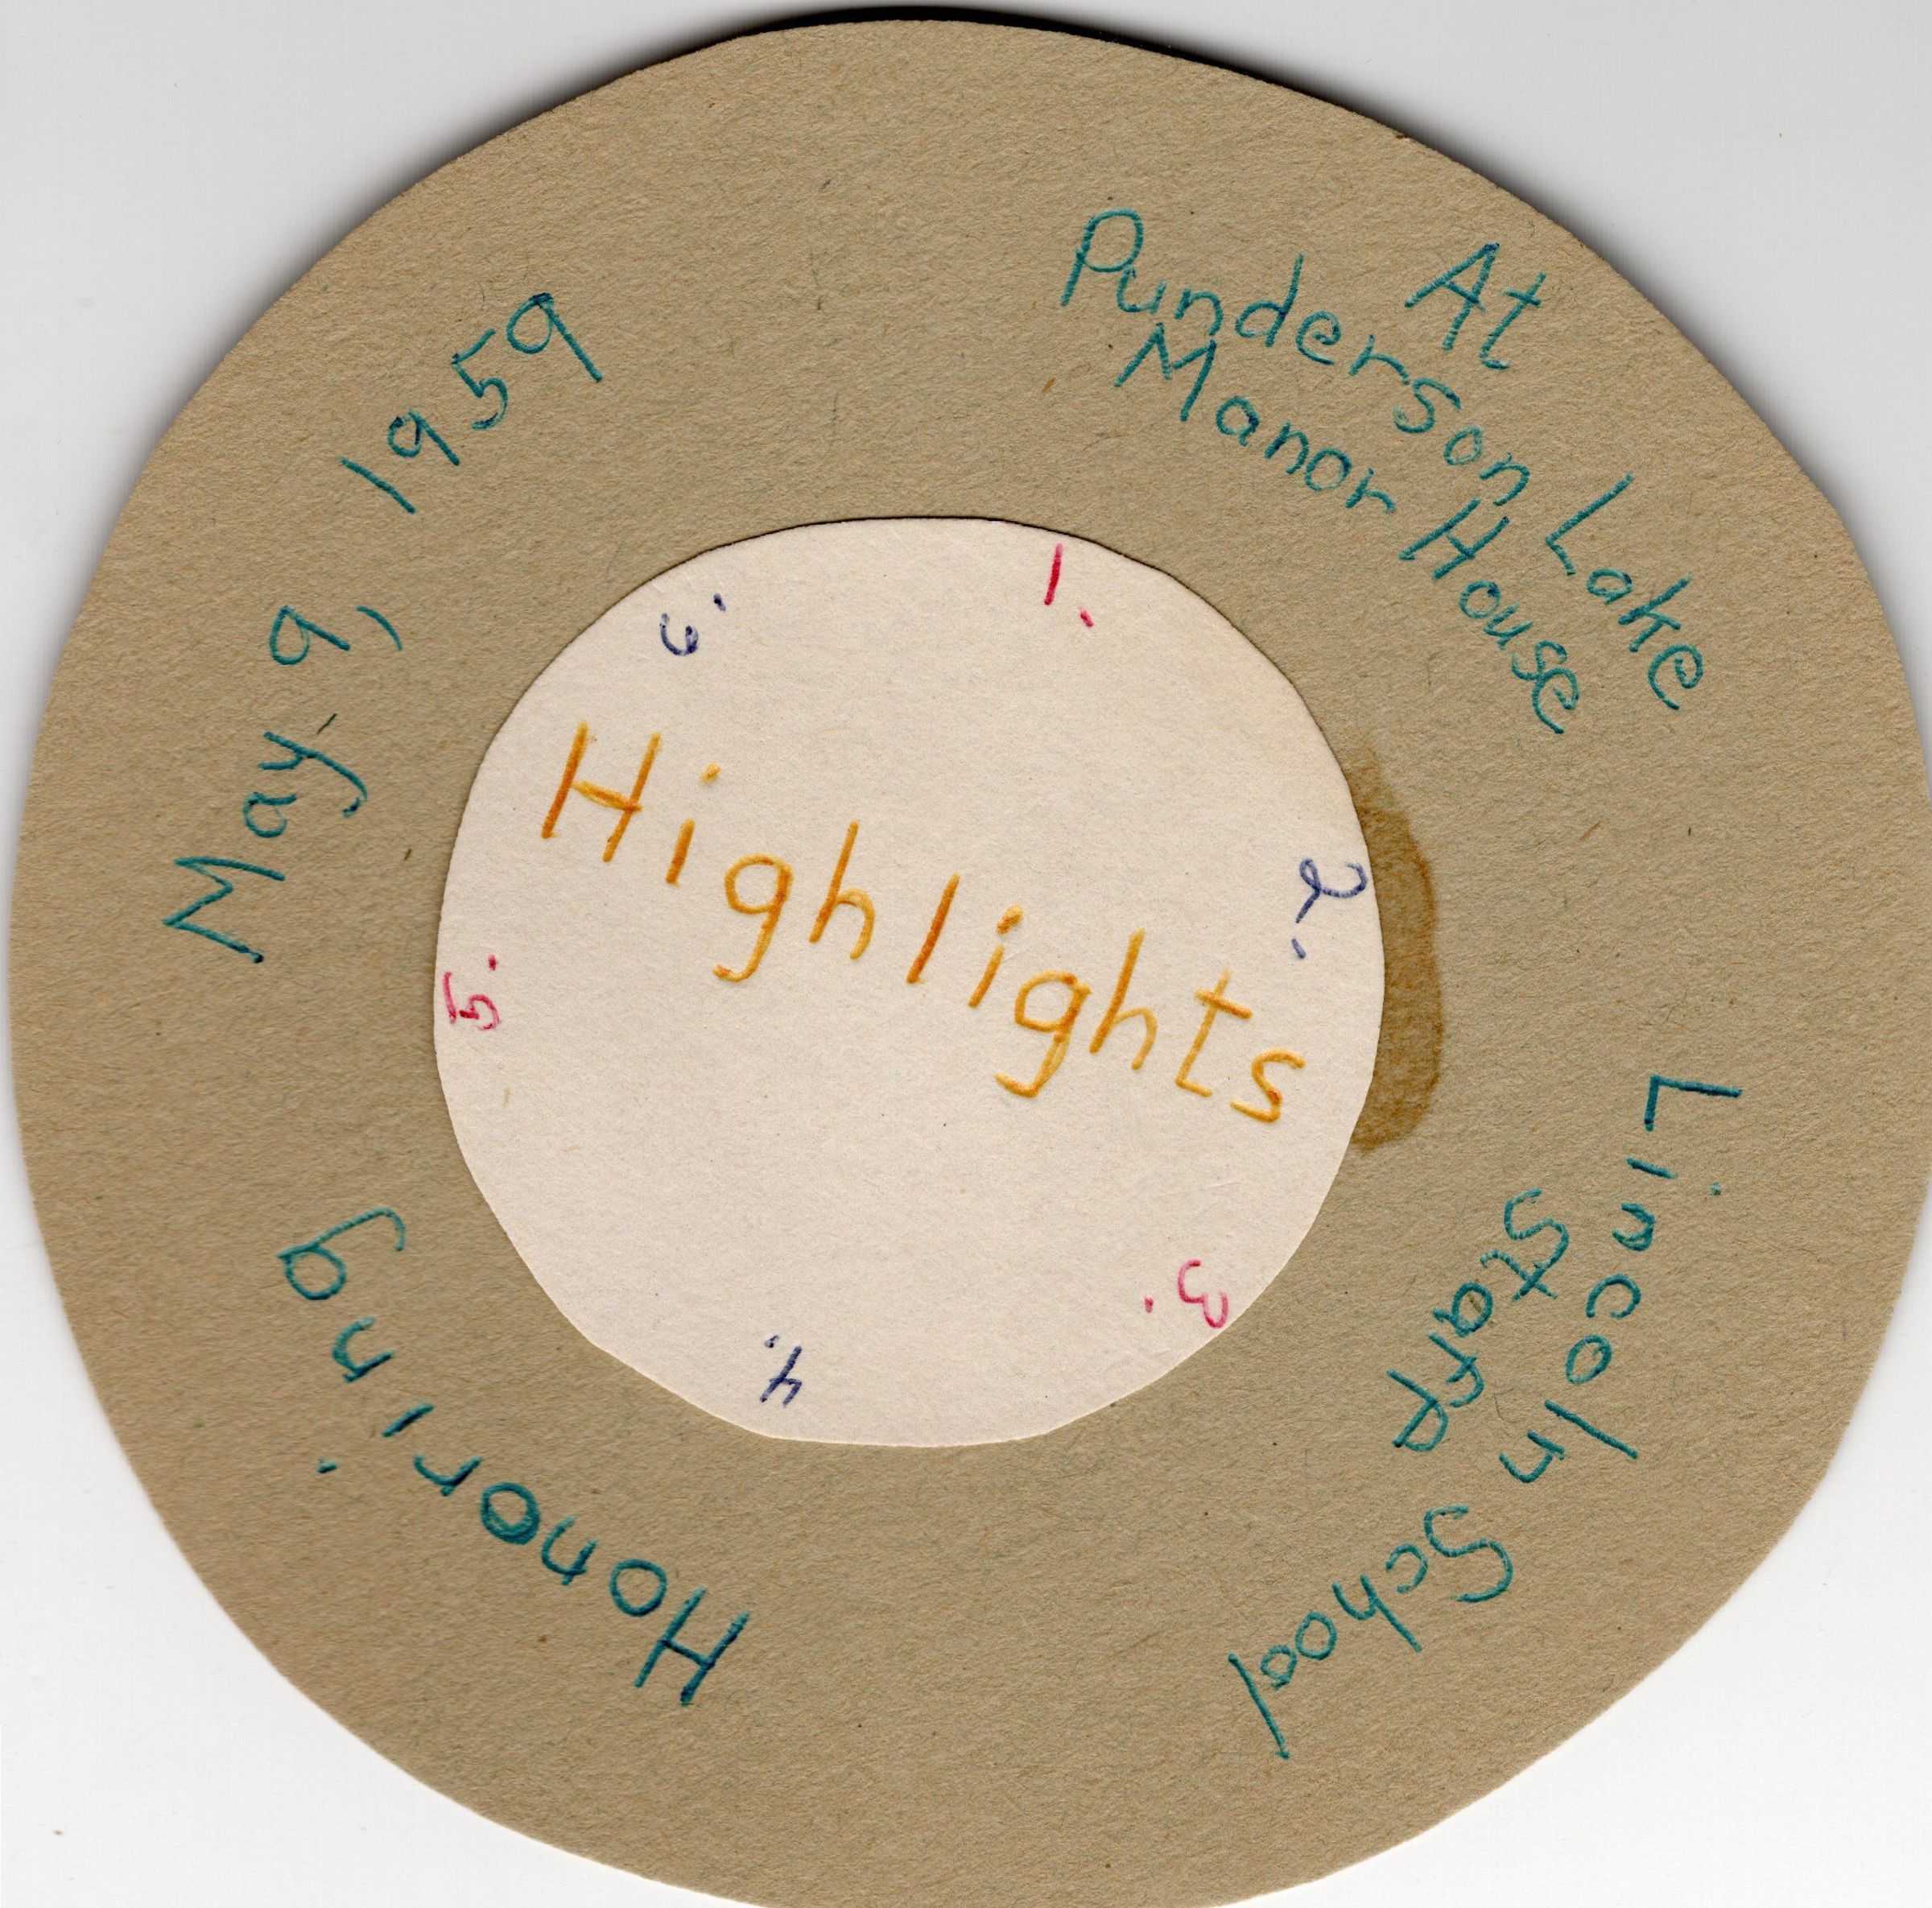 Honoring
Lincoln School
Staff
At
Punderson Lake
Manor House
May 9, 1959
Highlights
1.
2.
3.
4.
5.
6.